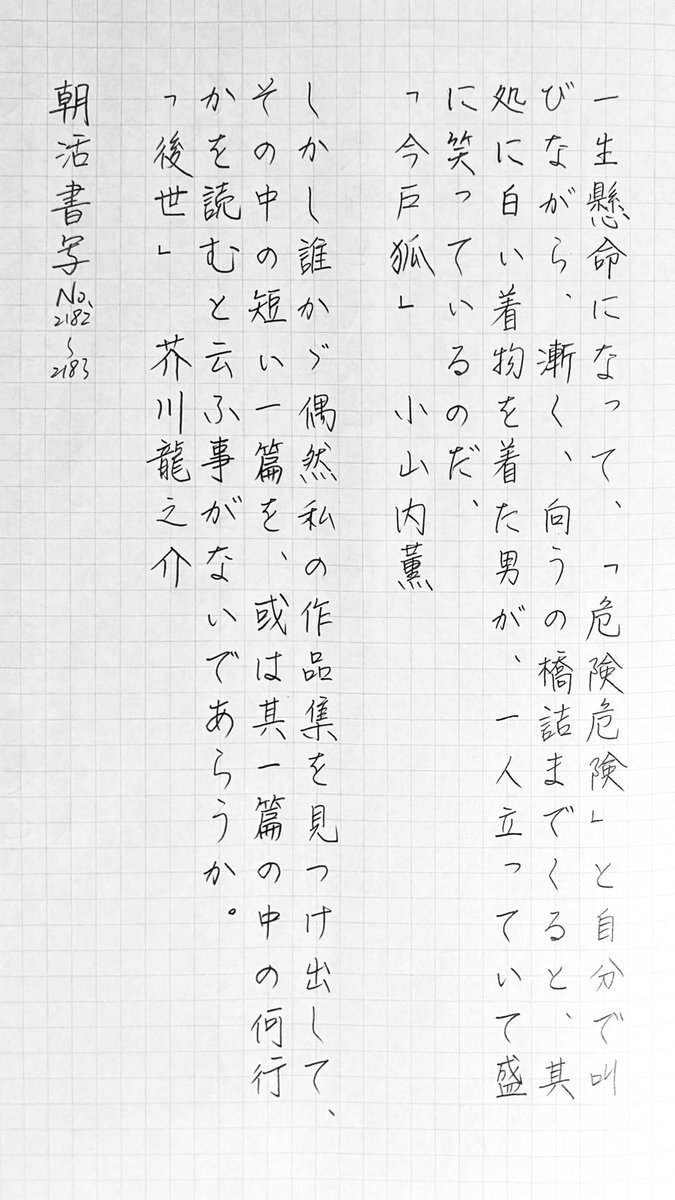 一生懸命になって、「危険危険」と自分で叫
びながら、漸く、向うの橋詰までくると、其
処に白い着物を着た男が、一人立っていて盛
に笑っているのだ、
「今戸狐」　小山内薫
しかし誰かゞ偶然私の作品集を見つけ出して、
その中の短い一篇を、或は其一篇の中の何行
かを読むと云ふ事がないであらうか。
「後世」　芥川龍之介
朝活書写 No.2182〜2183